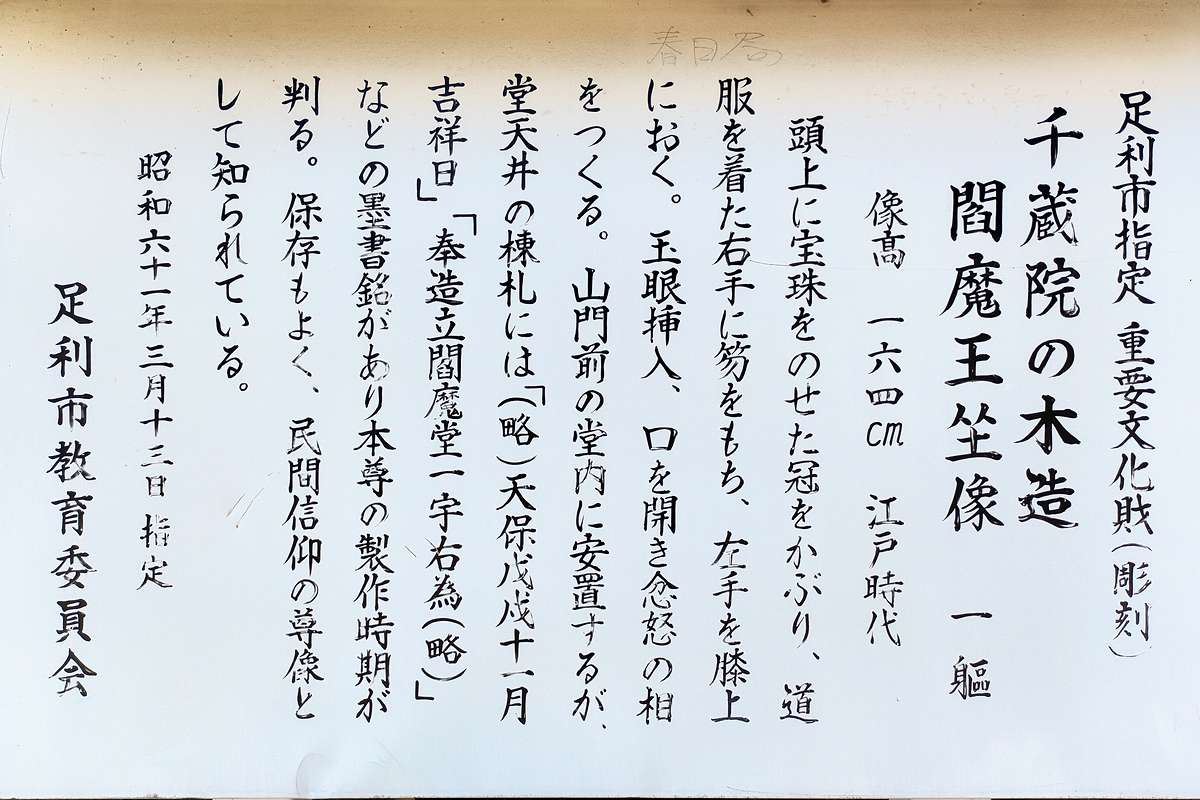 足利市指定 重要文化財(彫刻)
千蔵院の木造
閻魔王坐像 一軀
像高 一六四cm 江戸時代
頭上に宝珠をのせた冠をかぶり、道
服を着た右手に笏をもち、左手を膝上
におく。玉眼挿入、口を開き忿怒の相
をつくる。山門前の堂内に安置するが、
堂天井の棟札には「(略)天保戊戌十一月
吉祥日」「奉造立閻魔堂一宇右為(略)」
などの墨書銘があり本尊の製作時期が
判る。保存もよく、民間信仰の尊像と
して知られている。
昭和六十一年三月十三日指定
足利市教育委員会